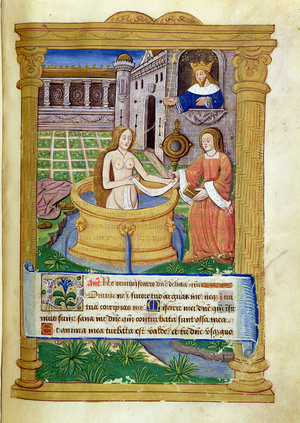 Añ. Ne reminiscaris dñe delicta nr̄a
Domine ne ī furore tuo arguas me: neq; ī ira
tua corripias me. Miserere mei dñe qm̄ ifir
mus sum: sana me dñe qm̄ conturbata sunt ossa mea.
Et anima mea turbata est valde: et tu dñe usquequo